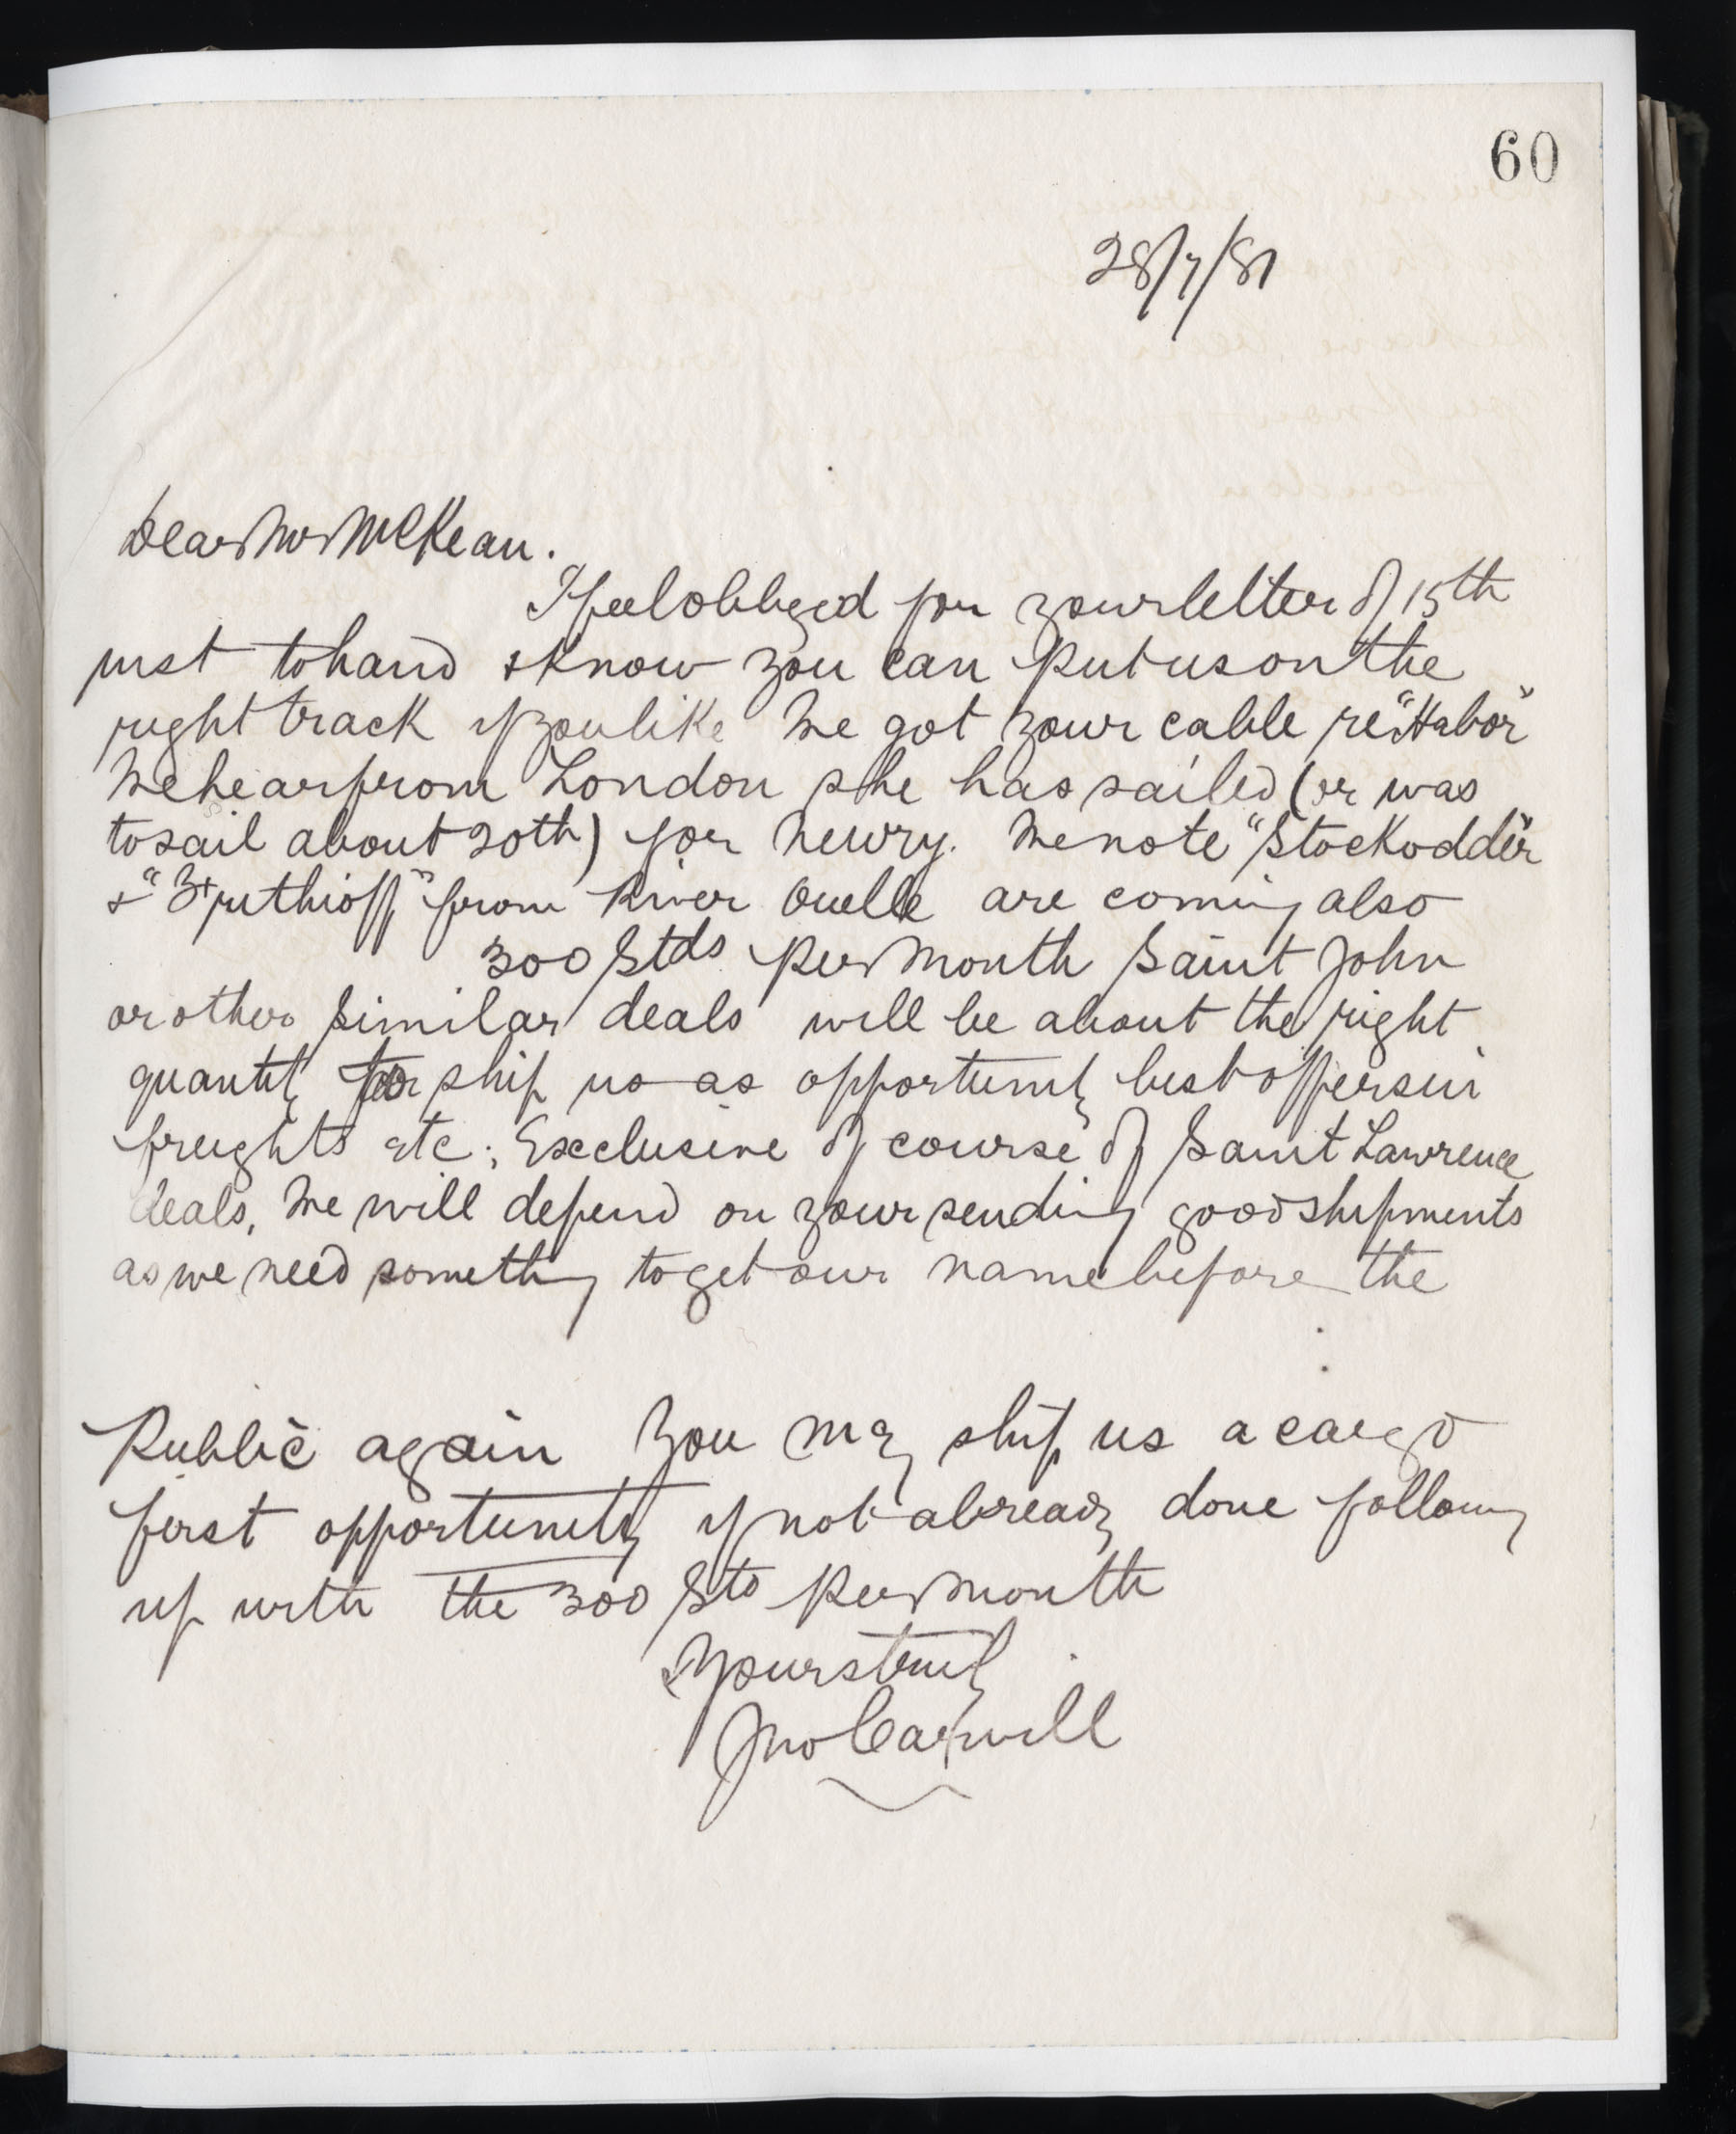 60
28/7/81
Dear Mr McKean.
I feel obliged for your letter of 15th
inst to hand & know you can put us on the
right track if you like We got your cable re "Habor"
We hear from London she has sailed (or was
to sail about 20th) for Newry. We note "Stockodder"
& from River Ouelle are coming also
300 Stds per month Saint John
or other similar deals will be about the right
quantity to ship us as opportunity best offers in
freights etc; Exclusive of course of Saint Lawrence
deals, We will depend on your sending good shipments
as we need something to get our name before the
Public again You may ship us a cargo
first opportunity if not already done following
up with the 300 Sts per month
Yours truly
Jno Carvill